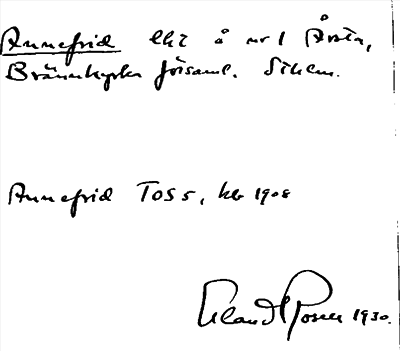 Annefrid lht å nr 1 Årsta,
Brännkyrka församl. Sthlm.
Annefrid TOS 5, kb 1908
Erland Rosell 1930.